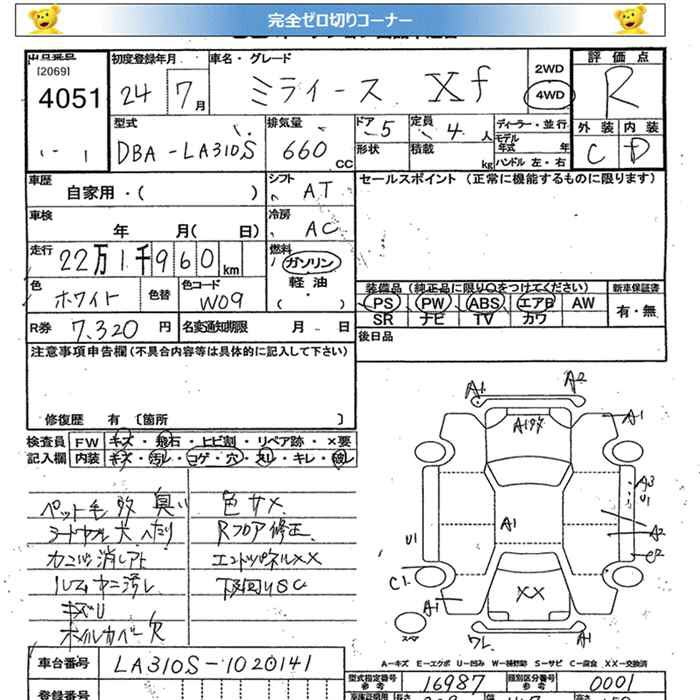 完全ゼロ切りコーナー
出品番号
[2069]
4051
初度登録年月
24 7月
車名・グレード
ミライース Xf
2WD
4WD
評価点
R
外装 内装
C D
型式
DBA-LA310S
排気量
660
CC
ドア
5
定員
4人
形状
積載
kg
ディーラー・並行
モデル
年式 年
ハンドル 左・右
車歴
自家用・( )
シフト
AT
セールスポイント (正常に機能するものに限ります)
車検
年 月( 日)
冷房
AC
走行
22万1千960km
燃料
ガソリン
軽油
・( )
色
ホワイト
色替
色コード
W09
装備品 (純正品に限り○をつけてください)
新車保証書
PS PW ABS エアB AW
有・無
SR ナビ TV カワ
R券
7,320 円
名変通知期限 月 日
後日品
注意事項申告欄(不具合内容等は具体的に記入して下さい)
修復歴 有 〔箇所 〕
検査員
記入欄
FW キズ・飛石・ヒビ割・リペア跡・×要
内装 キズ・汚レ・コゲ・穴・スレ・キレ・破レ
ペット毛多 臭い
色サメ
Rフロア修正
エンドパネルXX
下回りSC
キズU
ホイルカバー欠
A1 A2
A1
A1
A3
U1
A1
A2
U1
C2
C1
XX
A1
A1
スペア
A-キズ E-エクボ U-凹み W-補修跡 S-サビ C-腐食 XX-交換済
車台番号
LA310S-1020141
型式指定番号
参考
16987
類別区分番号
参考
0001
登録番号
長さ